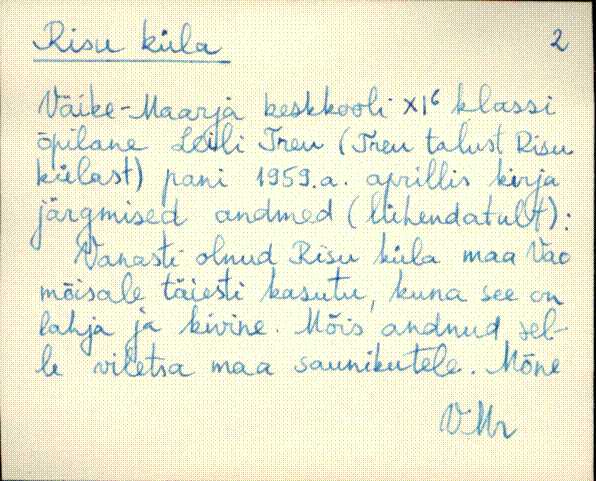 Risu küla
2
Väike-Maarja keskkooli XI б klassi
õpilane Leili Treu (Treu talust Risu
külast) pani 1959.a. aprillis kirja
järgmised andmed (lühendatult):
Vanasti olnud Risu küla maa Vao
mõisale täiesti kasutu, kuna see on
lahja ja kivine. Mõis andnud sel-
le viletsa maa saunikutele. Mõne